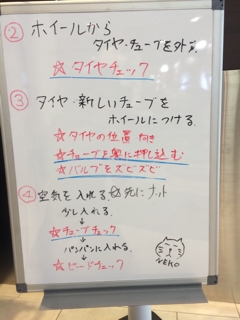 ② ホイールから
タイヤ・チューブを外す
☆タイヤチェック
③ タイヤ・新しいチューブを
ホイールにつける
☆タイヤの位置 向き
☆チューブを奥に押し込む
☆バルブをズビズビ
④ 空気を入れる ☆先にナット
少し入れる
↓
☆チューブチェック
↓
パンパンに入れる
↓
☆ビードチェック
NEKO